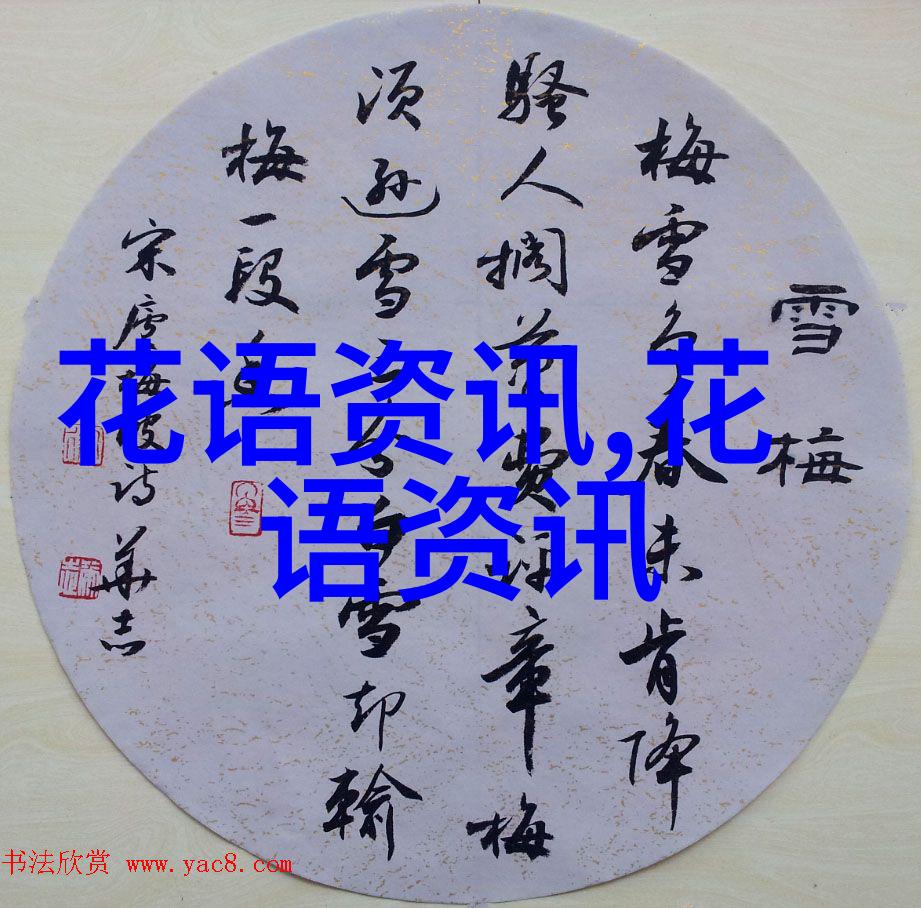 雪梅
梅雪争春未肯降
騷人擱笔費评章梅
须遜雪三分白雪却輸
梅一段香
宋廬梅坡诗 華志
花语资讯,花
语资讯
书法欣赏 www.yac8.com